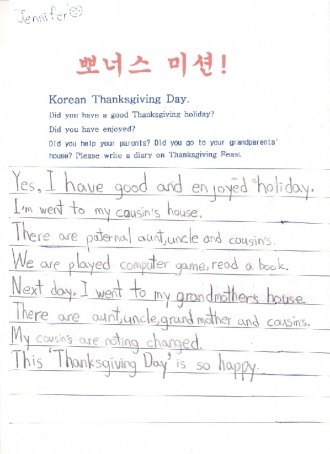 Jennifer
뽀너스 미션!
Korean Thanksgiving Day.
Did you have a good Thanksgiving holiday?
Did you have enjoyed?
Did you help your parents? Did you go to your grandparents'
house? Please write a diary on Thanksgiving Feast.
Yes, I have good and enjoyed holiday.
I'm went to my cousin's house.
There are paternal aunt,uncle and cousin's.
We are played computer game, read a book.
Next day. I went to my grandmother's house.
There are aunt,uncle,grand mother and cousin's.
My cousin's are noting changed.
This 'Thanksgiving Day' is so happy.